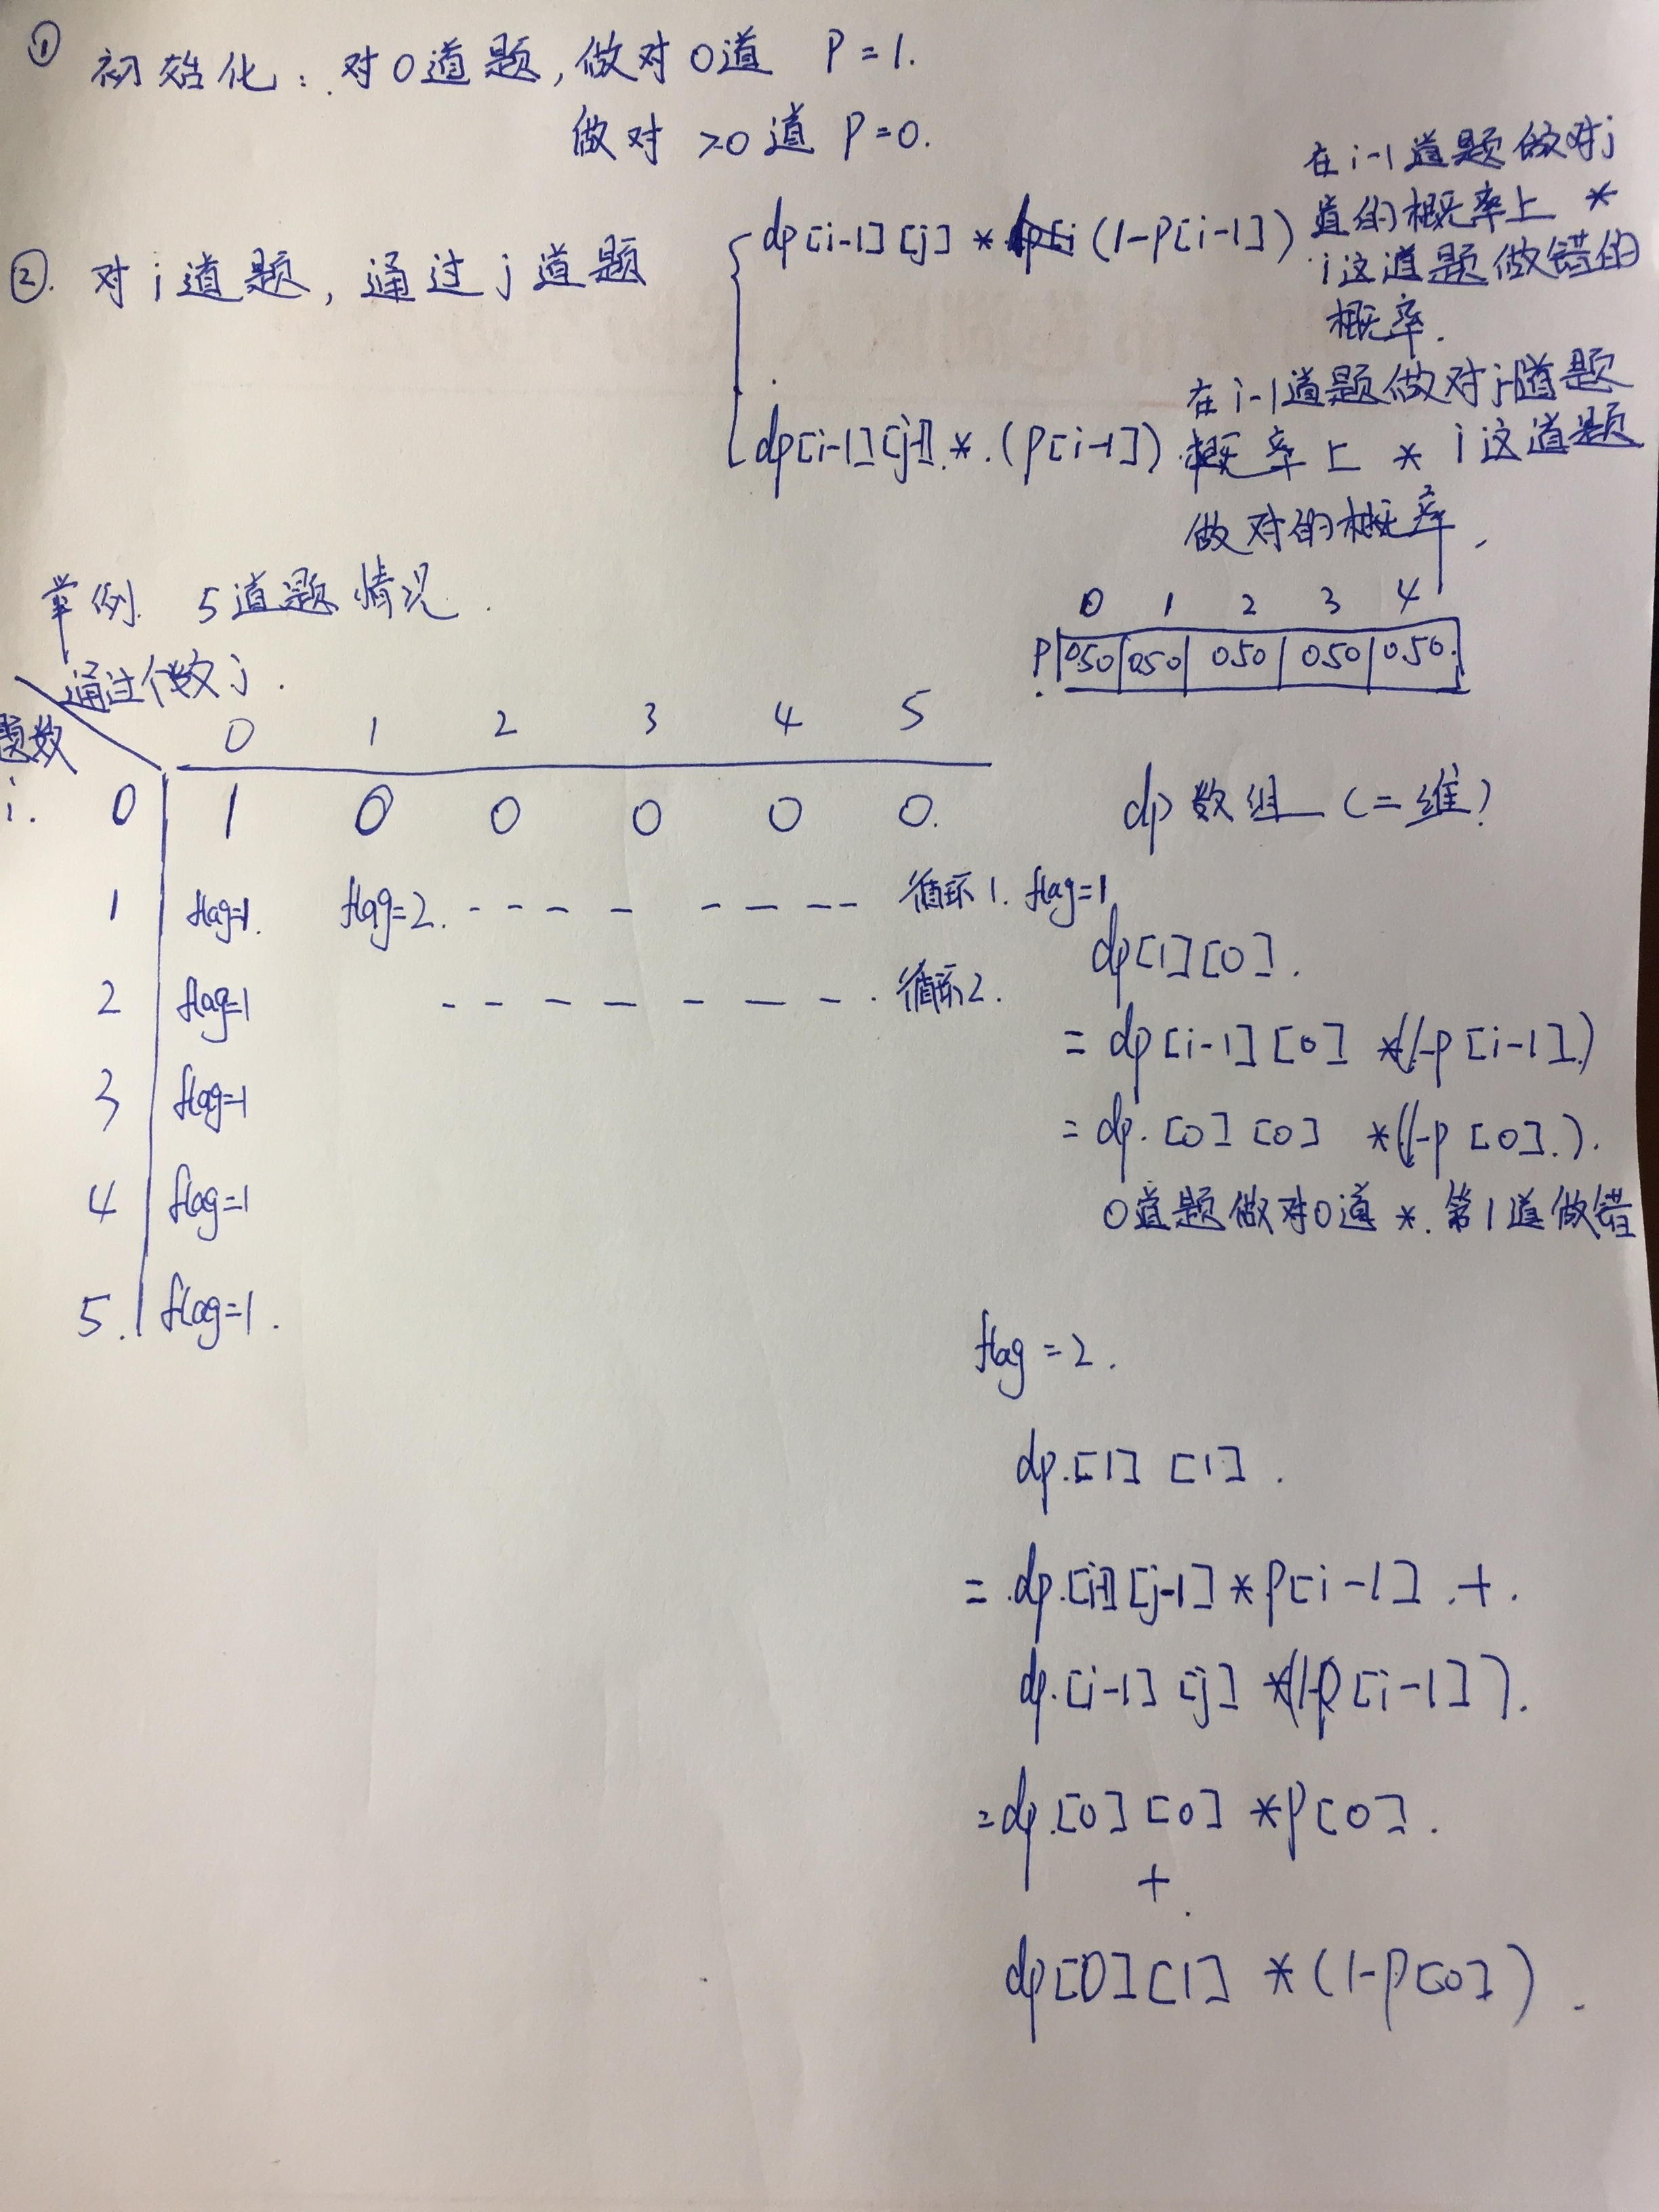 ① 初始化:对0道题,做对0道 P=1.
做对 >0道 P=0.
② 对i道题,通过j道题
dp[i-1][j] * (1-P[i-1])
在i-1道题做对j
道的概率上 *
i这道题做错的
概率.
dp[i-1][j-1] * (P[i-1])
在i-1道题做对j-1道题
概率上 * i这道题
做对的概率,
举例 5道题情况.
0 1 2 3 4
P 0.50 0.50 0.50 0.50 0.50
通过个数j.
题数
i.
0 1 2 3 4 5
0 1 0 0 0 0 0.
1 flag=1. flag=2. ---- ---- 循环1.
2 flag=1 ------- 循环2.
3 flag=1
4 flag=1
5. flag=1.
dp数组(二维)
flag=1
dp[1][0].
= dp[i-1][0] *(1-p[i-1])
= dp[0][0] *(1-p[0]).
0道题做对0道 * 第1道做错
flag=2.
dp[1][1].
= dp[i-1][j-1] * P[i-1] +
dp[i-1][j] *(1-P[i-1]).
= dp[0][0] *P[0].
+
dp[0][1] *(1-P[0]).